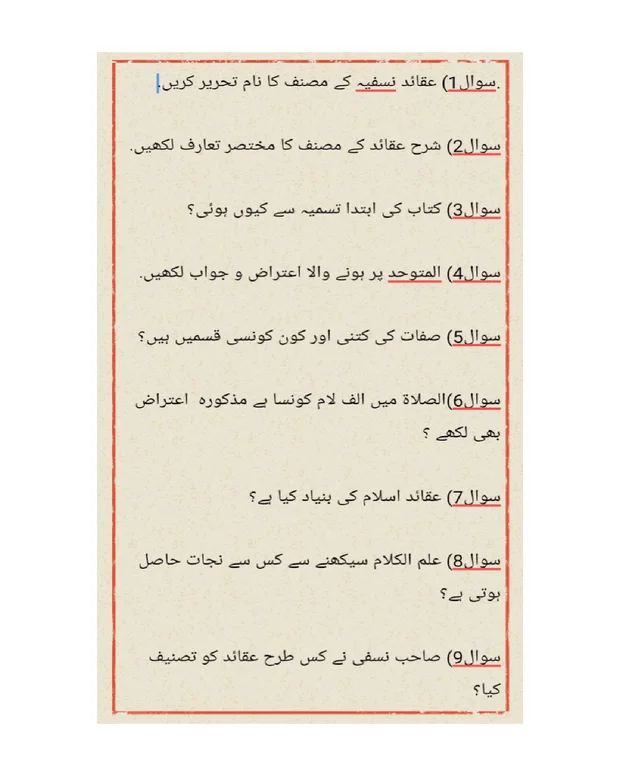 .سوال1) عقائد نسفیہ کے مصنف کا نام تحریر کریں.
سوال2) شرح عقائد کے مصنف کا مختصر تعارف لکھیں.
سوال3) کتاب کی ابتدا تسمیہ سے کیوں ہوئی؟
سوال4) المتوحد پر ہونے والا اعتراض و جواب لکھیں.
سوال5) صفات کی کتنی اور کون کونسی قسمیں ہیں؟
سوال6)الصلاة میں الف لام کونسا ہے مذکورہ اعتراض
بھی لکھے ؟
سوال7) عقائد اسلام کی بنیاد کیا ہے؟
سوال8) علم الکلام سیکھنے سے کس سے نجات حاصل
ہوتی ہے؟
سوال9) صاحب نسفی نے کس طرح عقائد کو تصنیف
کیا؟